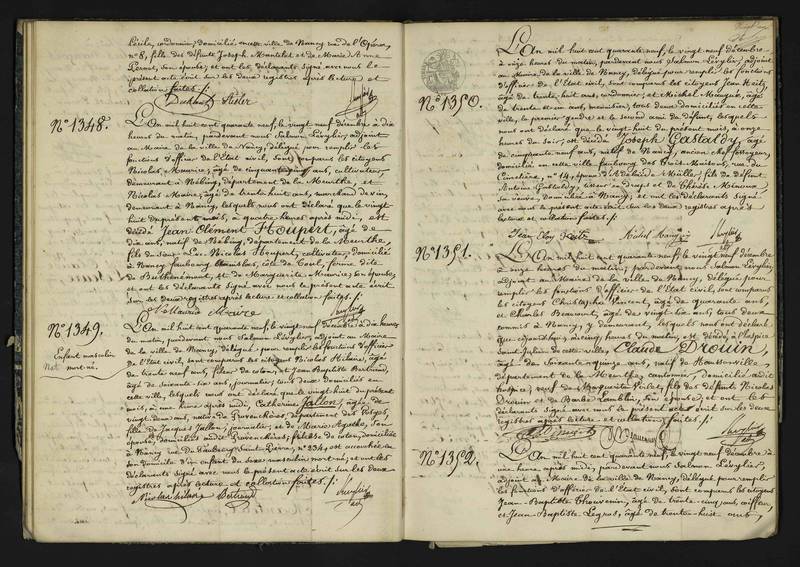 Cécile, cordonnier, domicilié en cette ville de Nancy rue de l'Opéra,
n° 8, fille des défunts Joseph et de Marie Anne
son épouse; et ont les déclarants signé avec nous le
présent acte écrit sur les deux registres après lecture et
collation faites ./.
N° 1348.
L'An mil huit cent quarante neuf, le vingt neuf décembre à dix
heures du matin, pardevant nous Salmon Lévylier, adjoint
au Maire de la ville de Nancy, délégué pour remplir les
fonctions d'officier de l'Etat civil, sont comparus les citoyens
Nicolas Maurice, âgé de cinquante ans, cultivateur,
demeurant à département de la Meurthe, et
Nicolas Maire, âgé de trente huit ans, marchand de vin,
demeurant à Nancy, lesquels nous ont déclaré que le vingt
huit du présent mois, à quatre heures après midi, est
décédé Jean Clément Houpert, âgé de
dix ans, natif de département de la Meurthe,
fils du sieur Nicolas Houpert, cultivateur, domicilié
à Nancy faubourg Stanislas, côte de Toul, ferme dite
de et de Marguerite Maurice, son épouse;
et ont les déclarants signé avec nous le présent acte écrit
sur les deux registres après lecture et collation faites ./.
N Maurice Maire
N° 1349.
Enfant masculin
mort-né.
L'An mil huit cent quarante neuf, le vingt neuf décembre à dix heures
du matin, pardevant nous Salmon Lévylier, adjoint au Maire
de la ville de Nancy, délégué pour remplir les fonctions d'officier
de l'Etat civil, sont comparus les citoyens Nicolas Hilaire, âgé
de trente neuf ans, fileur de coton, et Jean Baptiste Bertrand,
âgé de soixante six ans, journalier, tous deux domiciliés en
cette ville, lesquels nous ont déclaré que le vingt huit du présent
mois, à une heure après midi, Catherine Jallon, âgée de
vingt deux ans, native de Provenchères, département des Vosges,
fille de Jacques Jallon, journalier, et de Marie Agathe, son
épouse, domiciliés audit Provenchères; fileuse de coton, domiciliée
à Nancy rue du Faubourg Saint Pierre, n° 334, est accouchée en
son domicile d'un enfant du sexe masculin mort-né; et ont les
déclarants signé avec nous le présent acte écrit sur les deux
registres après lecture et collation faites ./.
Nicolas hilaire Bertrand
N° 1350.
L'An mil huit cent quarante neuf, le vingt neuf décembre
à onze heures du matin, pardevant nous Salmon Lévylier, adjoint
au Maire de la ville de Nancy, délégué pour remplir les fonctions
d'officier de l'Etat civil, sont comparus les citoyens Jean
âgé de trente huit ans, cordonnier, et Michel âgé
de trente et un ans, menuisier, tous deux domiciliés en cette
ville, le premier gendre et le second ami du défunt, lesquels
nous ont déclaré que le vingt huit du présent mois, à onze
heures du soir, est décédé Joseph Gastaldy, âgé
de cinquante neuf ans, natif de Nancy, ancien fossoyeur,
domicilié en cette ville faubourg des Trois Maisons, rue du
Cimetière, n° 14, époux de Müller; fils de défunt
Antoine Gastaldy, tireur en draps et de Thérèse
sa veuve, domiciliée à Nancy; et ont les déclarants signé
avec nous le présent acte écrit sur les deux registres après
lecture et collation faites ./.
N° 1351.
L'An mil huit cent quarante neuf, le vingt neuf décembre
à onze heures du matin, pardevant nous Salmon Lévylier,
adjoint au Maire de la ville de Nancy, délégué pour
remplir les fonctions d'officier de l'Etat civil, sont comparus
les citoyens Christophe Vincent, âgé de quarante ans,
et Charles Beauvant, âgé de vingt six ans, tous deux
commis à Nancy, y demeurant, lesquels nous ont déclaré
que cejourd'hui, à cinq heures du matin, est décédé à l'hospice
Saint Julien de cette ville, Claude Drouin,
âgé de soixante quinze ans, natif de Haussonville,
département de la Meurthe, cantonnier, domicilié audit
hospice; veuf de Marguerite fils des défunts Nicolas
Drouin et de Barbe son épouse; et ont les
déclarants signé avec nous le présent acte écrit sur les deux
registres après lecture et collation faites ./.
N° 1352.
L'An mil huit cent quarante neuf, le vingt neuf décembre à
une heure après midi, pardevant nous Salmon Lévylier,
adjoint au Maire de la ville de Nancy, délégué pour remplir
les fonctions d'officier de l'Etat civil, sont comparus les citoyens
Jean-Baptiste Thouvenin, âgé de trente-cinq ans, coiffeur,
et Jean-Baptiste Legros, âgé de trente-huit ans,